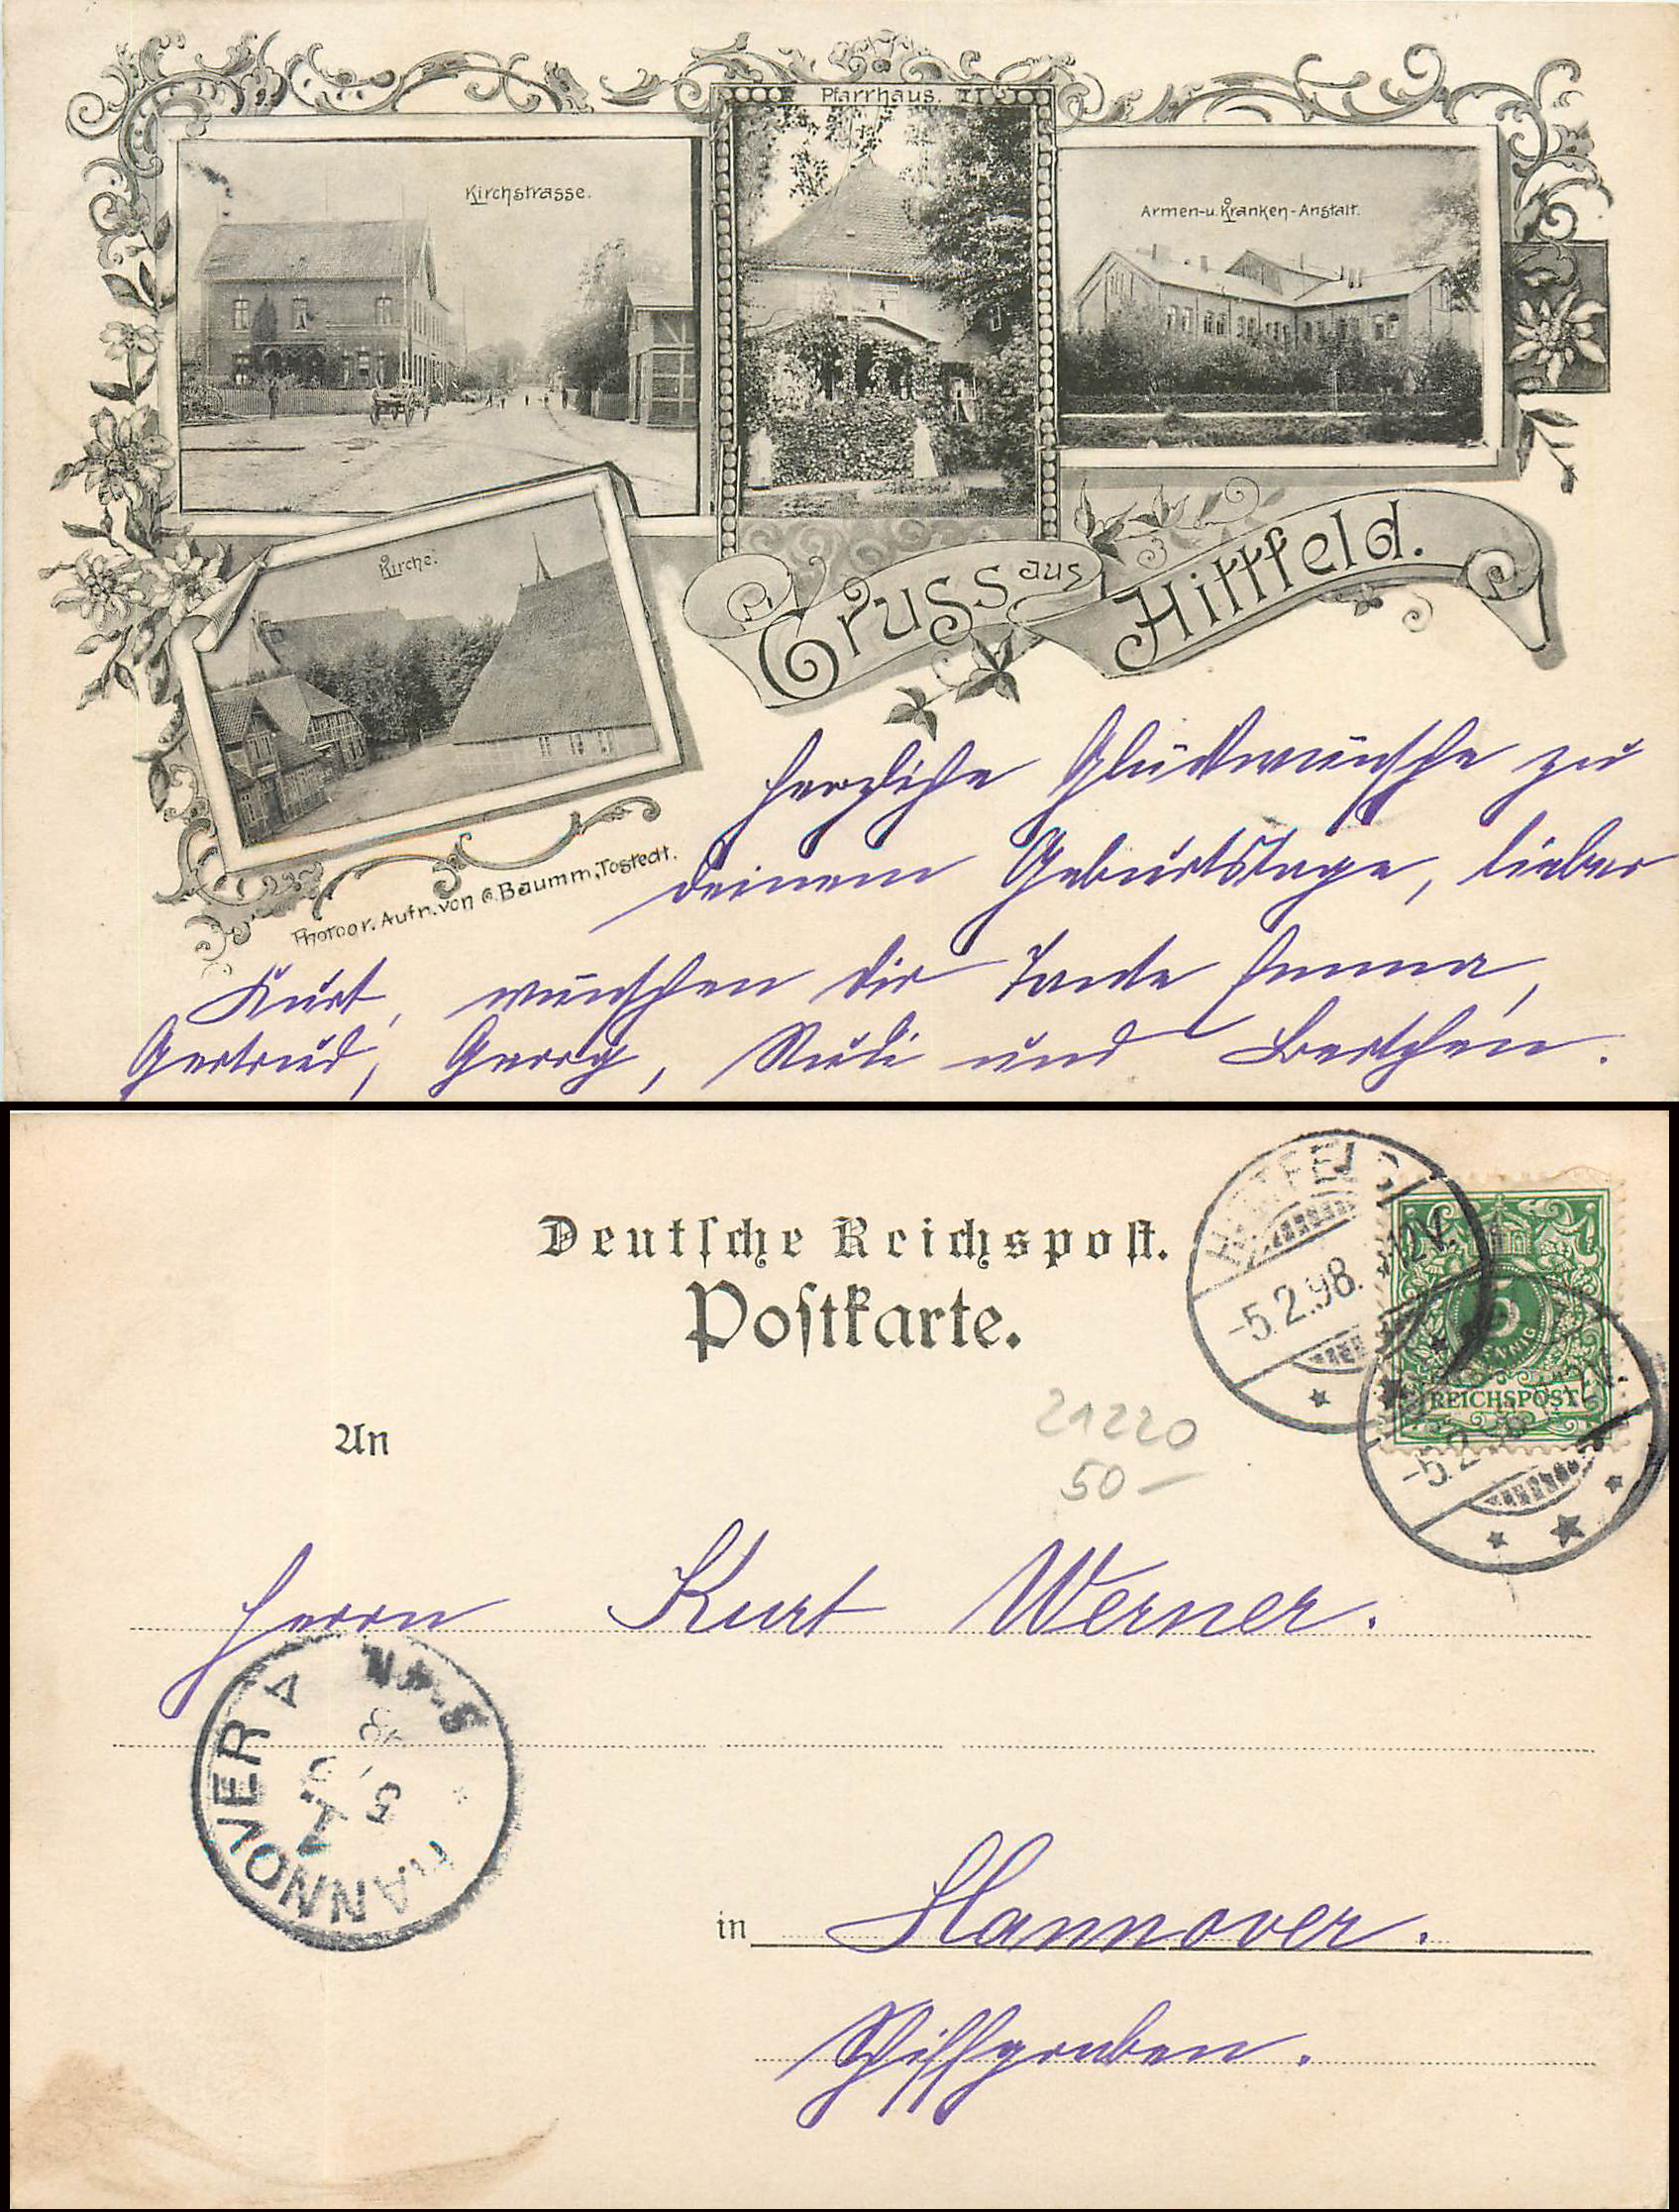 Pfarrhaus.
Kirchstrasse.
Armen-u. Kranken-Anstalt.
Kirche.
Gruss aus Hittfeld.
Photogr. Aufn. von G. Baumm, Tostedt.
Herzliche Glückwünsche zu
deinem Geburtstage, lieber
Kurt, wünschen dir Tante Emma,
Gertrud, Georg, Rudi und Bertchen.
Deutsche Reichspost.
Postkarte.
HITTFELD
-5.2.98. 12V.
5
PFENNIG
REICHSPOST
-5.2.98. 12V.
An
21220
50-
Herrn Kurt Werner.
HANNOVER
5
98
in Hannover.
Schiffgraben.